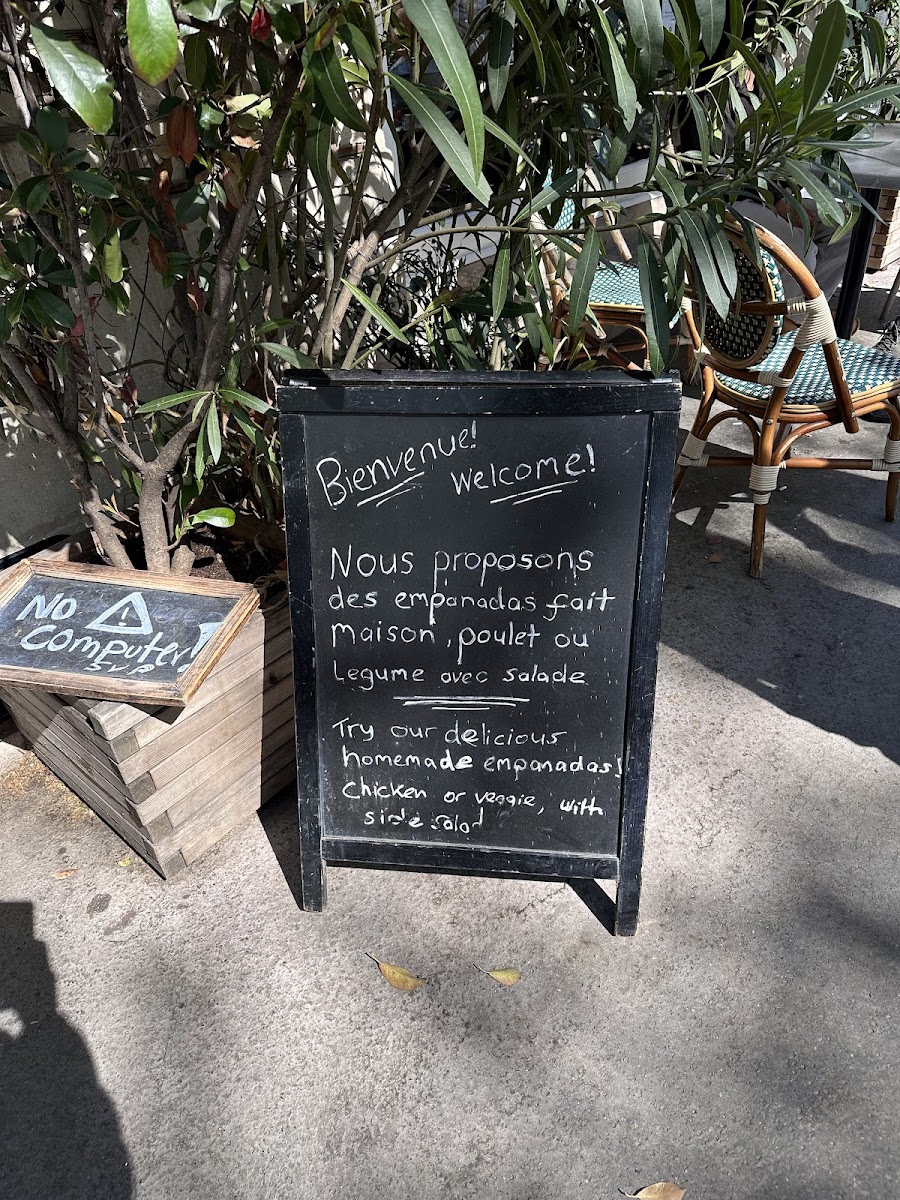 Bienvenue! Welcome!
Nous proposons
des empanadas fait
maison, poulet ou
Legume avec salade
Try our delicious
homemade empanadas!
Chicken or veggie, with
side salad
No
Computer!
svp